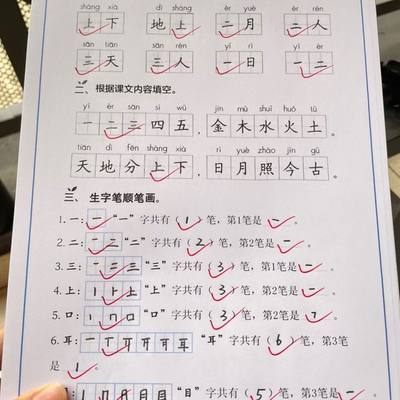 shàng xià dì shàng èr yuè èr rén
上下 地上 二月 二人
sān tiān sān rén yī rì yī èr
三天 三人 一日 一二
二、根据课文内容填空。
yī èr sān sì wǔ jīn mù shuǐ huǒ tǔ
一二三四五，金木水火土。
tiān dì fēn shàng xià rì yuè zhào jīn gǔ
天地分上下，日月照今古。
三、生字笔顺笔画。
1. 一：一 “一”字共有（1）笔，第1笔是一。
2. 二：一二 “二”字共有（2）笔，第2笔是一。
3. 三：一二三 “三”字共有（3）笔，第1笔是一。
4. 上：丨⺊上 “上”字共有（3）笔，第2笔是一。
5. 口：丨冂口 “口”字共有（3）笔，第2笔是㇕。
6. 耳 “耳”字共有（6）笔，第3笔
是丨。
“目”字共有（5）笔，第3笔是一。